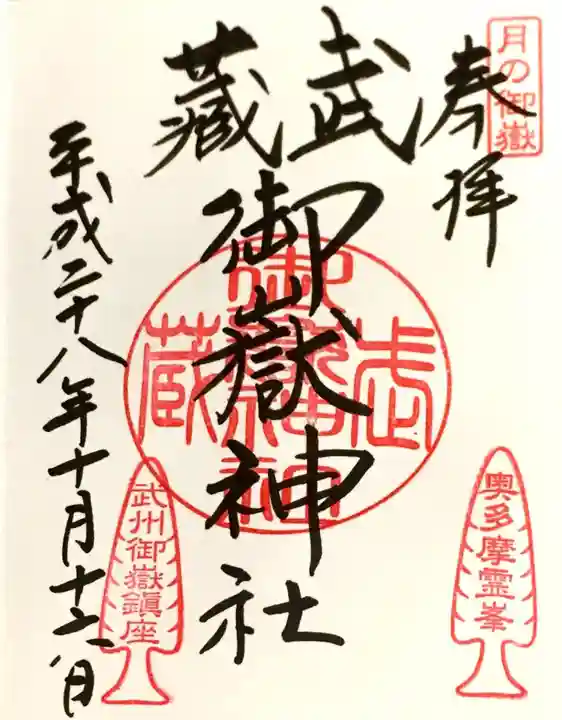 月の御嶽
奉拝
武藏
御嶽神社
平成二十八年十月十六日
奥多摩霊峯
武州御嶽鎮座